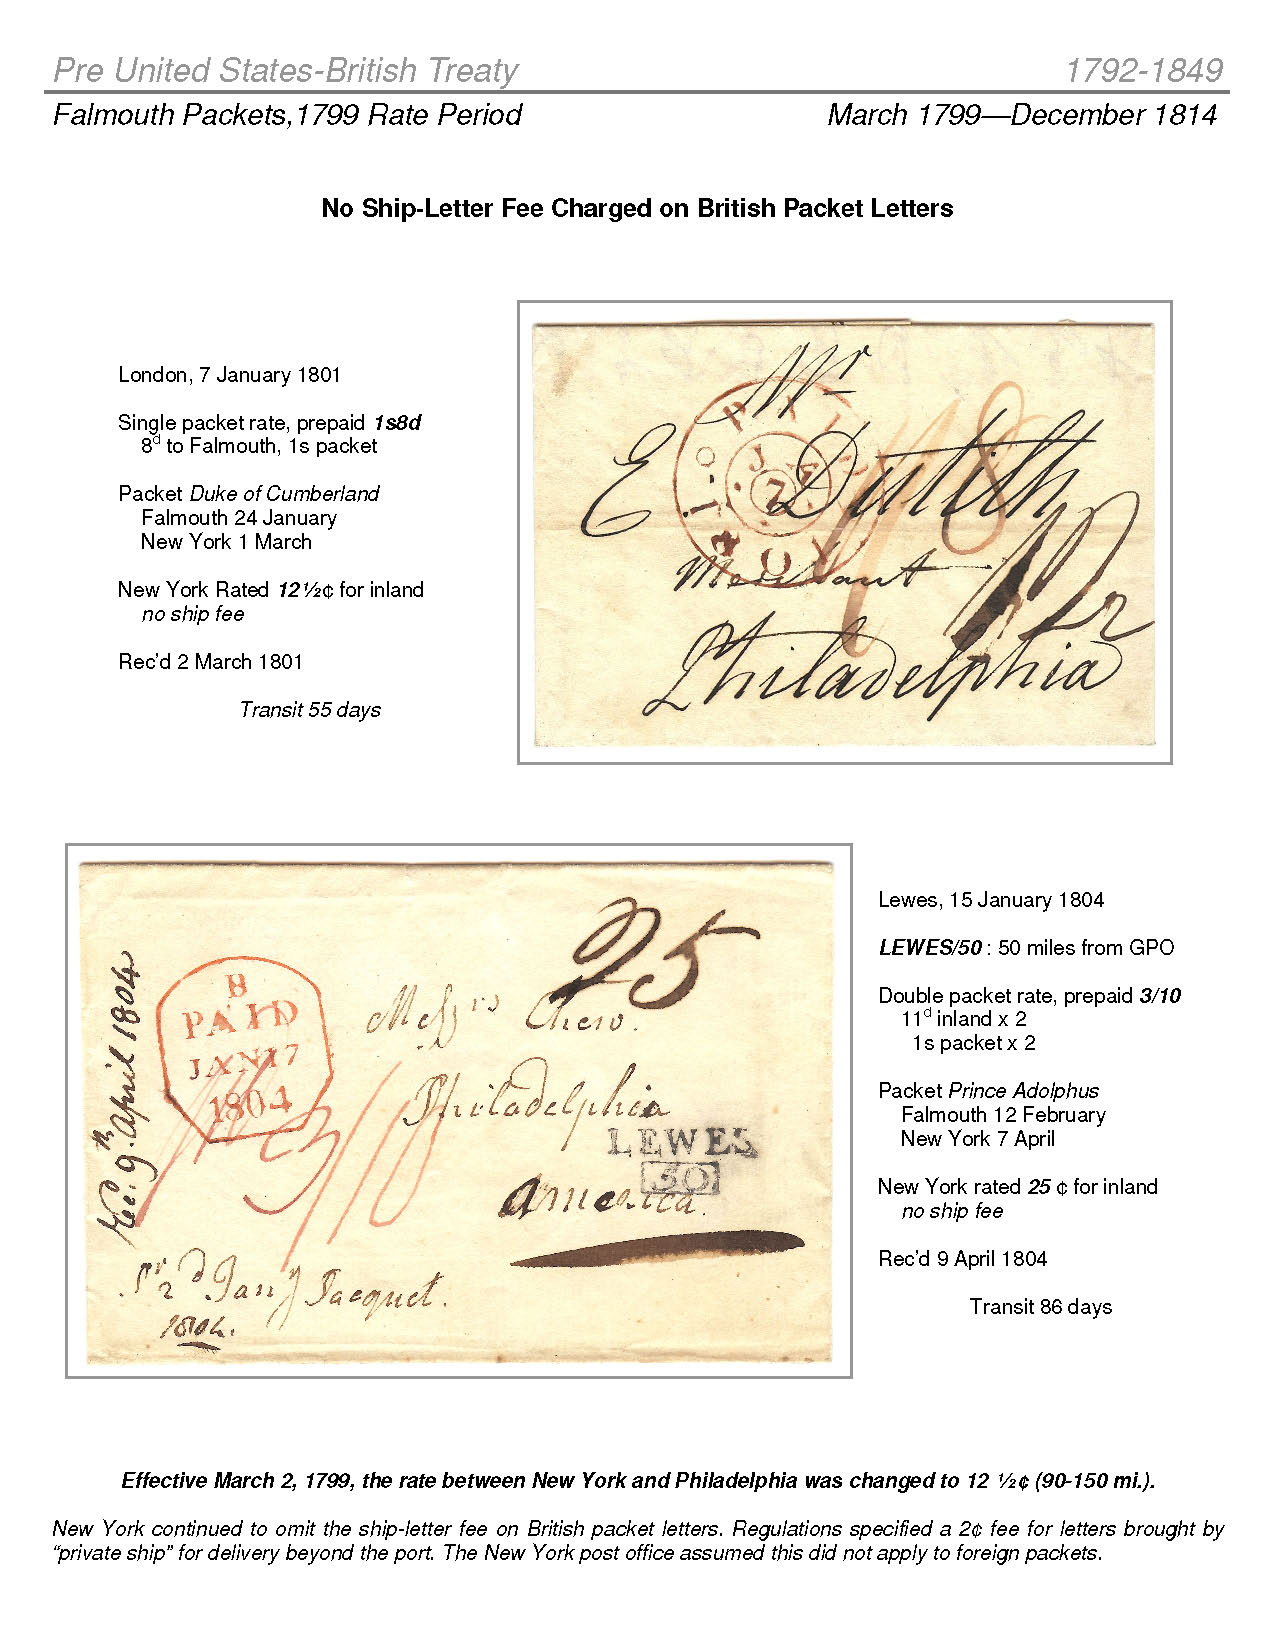 Pre United States-British Treaty 1792-1849
Falmouth Packets, 1799 Rate Period March 1799—December 1814
No Ship-Letter Fee Charged on British Packet Letters
London, 7 January 1801
Single packet rate, prepaid 1s8d
8d to Falmouth, 1s packet
Packet Duke of Cumberland
Falmouth 24 January
New York 1 March
New York Rated 12½¢ for inland
no ship fee
Rec'd 2 March 1801
Transit 55 days
Mr
E Dutilh
Merchant
Philadelphia
PAID
JA
7
1801
1/8
12½
Lewes, 15 January 1804
LEWES/50 : 50 miles from GPO
Double packet rate, prepaid 3/10
11d inland x 2
1s packet x 2
Packet Prince Adolphus
Falmouth 12 February
New York 7 April
New York rated 25 ¢ for inland
no ship fee
Rec'd 9 April 1804
Transit 86 days
25
B
PAID
JAN 17
1804
Messrs Chew.
Philadelphia
LEWES
50
America.
3/10
Rec. 9th. April 1804
Jany Pacquet.
1804.
Effective March 2, 1799, the rate between New York and Philadelphia was changed to 12 ½¢ (90-150 mi.).
New York continued to omit the ship-letter fee on British packet letters. Regulations specified a 2¢ fee for letters brought by
"private ship" for delivery beyond the port. The New York post office assumed this did not apply to foreign packets.